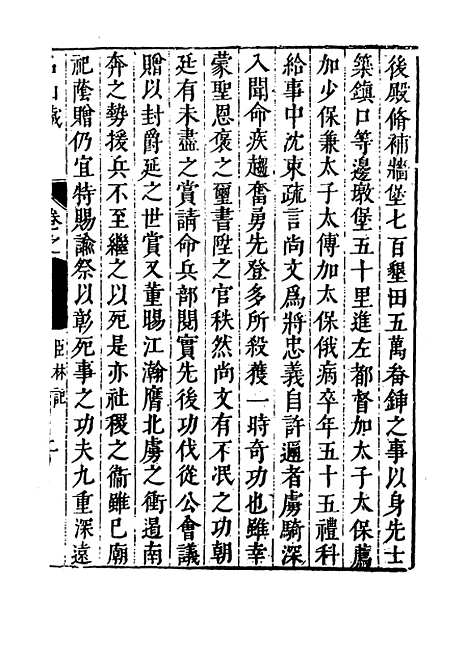 後殿脩補牆堡七百墾田五萬畚鍤之事以身先士
築鎮口等邊墩堡五十里進左都督加太子太保薦
加少保兼太子太傅加太保俄病卒年五十五禮科
給事中沈束疏言尚文爲將忠義自許邇者虜騎深
入聞命疾趨奮勇先登多所殺獲一時奇功也雖幸
蒙聖恩褒之璽書陞之官秩然尚文有不泯之功朝
廷有未盡之賞請命兵部閱實先後功伐從公會議
贈以封爵延之世賞又董暘江瀚膺北虜之衝遏南
奔之勢援兵不至繼之以死是亦社稷之衞雖已廟
祀蔭贈仍宜特賜諭祭以彰死事之功夫九重深遠
名山藏
卷之
臣林記